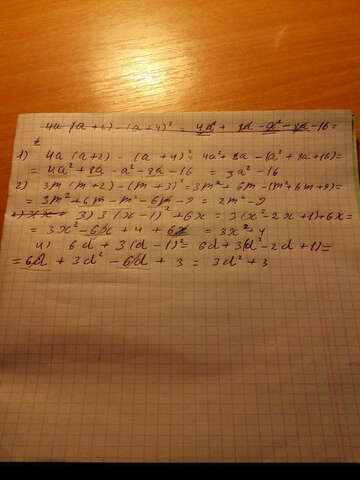 4a (a + 2) - (a + 4)² = 4a² + 8a - a² - 8a - 16 =
1) 4a (a+2) - (a + 4)² = 4a² + 8a - (a² + 8a + 16) =
= 4a² + 8a - a² - 8a - 16 = 3a² - 16
2) 3m (m + 2) - (m + 3)² = 3m² + 6m - (m² + 6m + 9) =
= 3m² + 6m - m² - 6m - 9 = 2m² - 9
3) 3 (x - 1)² + 6x = 3 (x² - 2x + 1) + 6x =
= 3x² - 6x + 4 + 6x = 3x² + 4
4) 6d + 3 (d - 1)² = 6d + 3(d² - 2d + 1) =
= 6d + 3d² - 6d + 3 = 3d² + 3